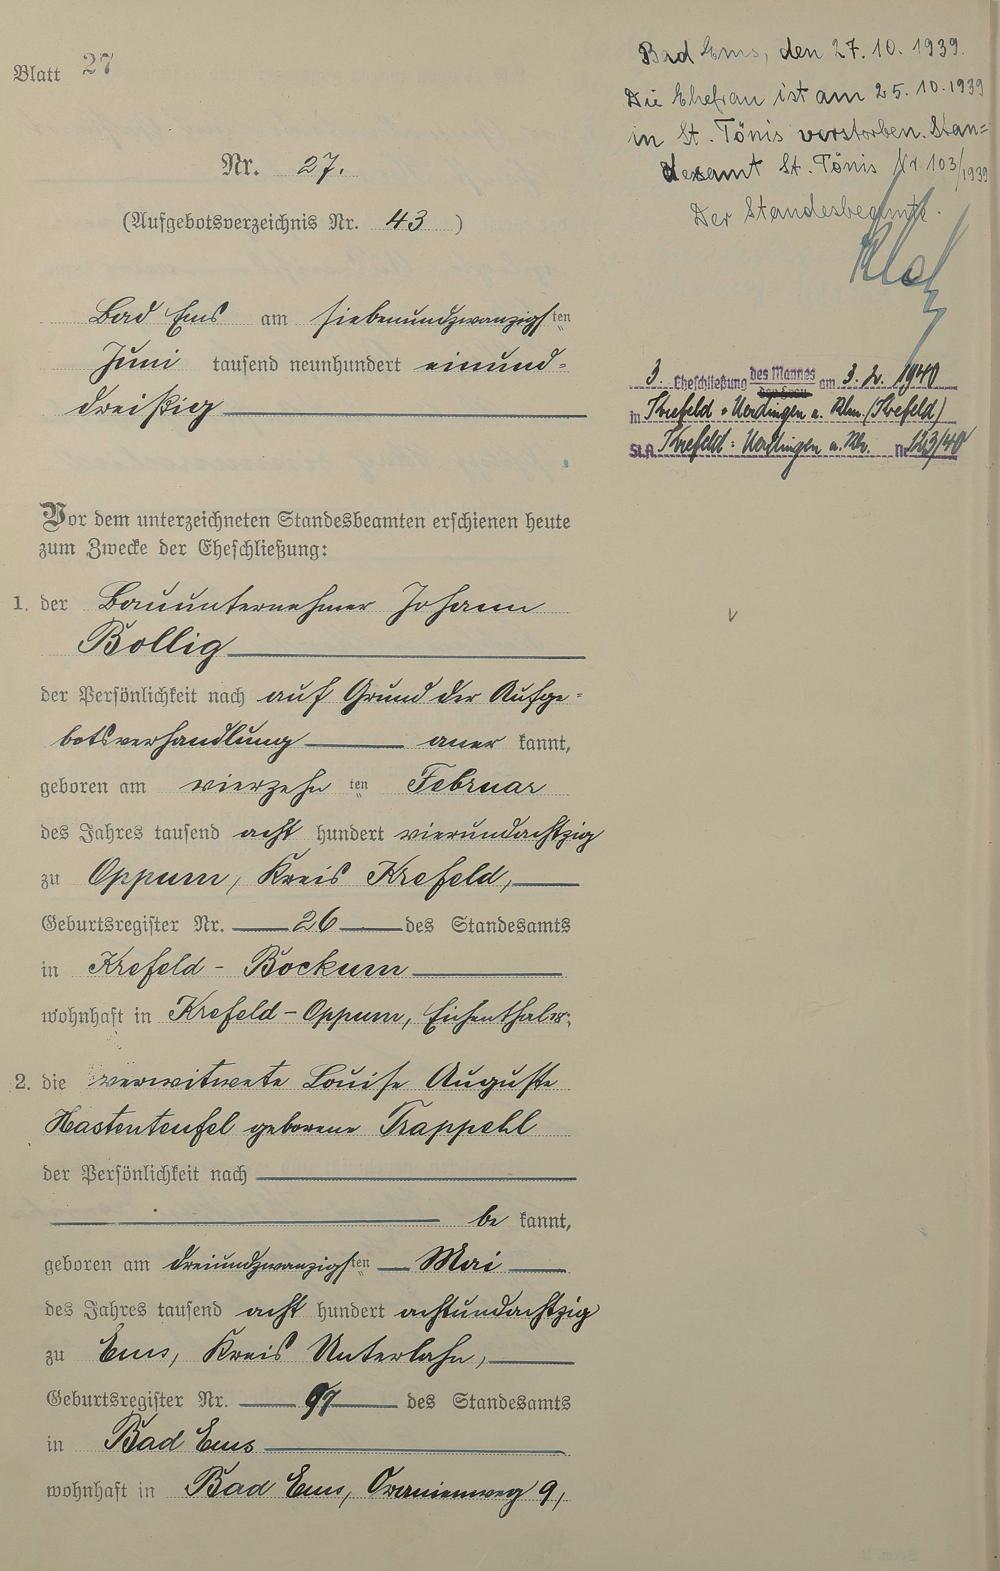 Blatt 27
Nr. 27.
(Aufgebotsverzeichnis Nr. 43)
Bad Ems am siebenundzwanzigsten
Juni tausend neunhundert einund-
dreißig
Vor dem unterzeichneten Standesbeamten erschienen heute
zum Zwecke der Eheschließung:
1. der Bauunternehmer Johann
Bollig
der Persönlichkeit nach auf Grund der Aufge-
botsverhandlung aner kannt,
geboren am vierzehn ten Februar
des Jahres tausend acht hundert vierundachtzig
zu Oppum, Kreis Krefeld,
Geburtsregister Nr. 26 des Standesamts
in Krefeld - Bockum
wohnhaft in Krefeld - Oppum,
2. die verwitwete Louise Auguste
Hastenteufel geborene Trappehl
der Persönlichkeit nach
be kannt,
geboren am dreiundzwanzigsten Mai
des Jahres tausend acht hundert achtundachtzig
zu Ems, Kreis Unterlahn,
Geburtsregister Nr. 97 des Standesamts
in Bad Ems
wohnhaft in Bad Ems, Oranienweg 9,
Bad Ems, den 27.10.1939.
Die Ehefrau ist am 25.10.1939
in St. Tönis verstorben. Stan-
desamt St. Tönis Nr. 103/1939
Der Standesbeamte.
3. Eheschließung des Mannes der Frau am 3.2.1940
in Krefeld-Uerdingen a. Rhn. (Krefeld)
StA. Krefeld-Uerdingen a. Rh. Nr. 123/40